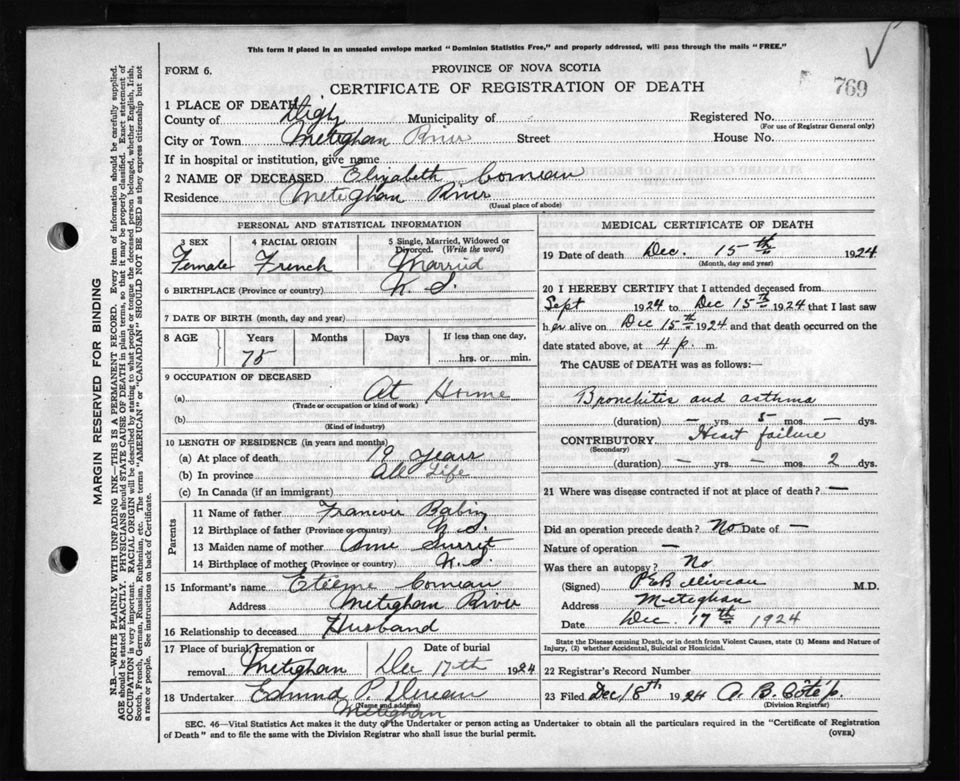 This form if placed in an unsealed envelope marked "Dominion Statistics Free," and properly addressed, will pass through the mails "FREE."
FORM 6.
PROVINCE OF NOVA SCOTIA
CERTIFICATE OF REGISTRATION OF DEATH
769
1 PLACE OF DEATH
County of Digby Municipality of Registered No.
(For use of Registrar General only)
City or Town Meteghan River Street House No.
If in hospital or institution, give name
2 NAME OF DECEASED Elizabeth Comeau
Residence Meteghan River
(Usual place of abode)
PERSONAL AND STATISTICAL INFORMATION
3 SEX 4 RACIAL ORIGIN 5 Single, Married, Widowed or Divorced. (Write the word)
Female French Married
6 BIRTHPLACE (Province or country) N. S.
7 DATE OF BIRTH (month, day and year)
8 AGE Years Months Days If less than one day,
75 hrs. or min.
9 OCCUPATION OF DECEASED
(a) At Home
(Trade or occupation or kind of work)
(b)
(Kind of industry)
10 LENGTH OF RESIDENCE (in years and months)
(a) At place of death years
(b) In province All Life
(c) In Canada (if an immigrant)
Parents
11 Name of father Francois Babin
12 Birthplace of father (Province or country) N. S.
13 Maiden name of mother
14 Birthplace of mother (Province or country) N. S.
15 Informant's name Etienne Comeau
Address Meteghan River
16 Relationship to deceased Husband
17 Place of burial, cremation or removal Meteghan Date of burial Dec 17th 1924
18 Undertaker Edmund P. Deveau
(Name and address)
Meteghan
MEDICAL CERTIFICATE OF DEATH
19 Date of death Dec. 15th 1924
(Month, day and year)
20 I HEREBY CERTIFY that I attended deceased from
Sept 1924 to Dec 15th 1924 that I last saw
her alive on Dec 15th 1924 and that death occurred on
date stated above, at 4 p. m.
The CAUSE of DEATH was as follows:—
Bronchitis and asthma
(duration) — yrs. 5 mos. — dys.
CONTRIBUTORY Heart failure
(Secondary)
(duration) — yrs. — mos. 2 dys.
21 Where was disease contracted if not at place of death? —
Did an operation precede death? No Date of —
Nature of operation —
Was there an autopsy? No
(Signed) M.D.
Address Meteghan
Date Dec. 17th 1924
State the Disease causing Death, or in death from Violent Causes, state (1) Means and Nature of
Injury, (2) whether Accidental, Suicidal or Homicidal.
22 Registrar's Record Number
23 Filed Dec 18th 1924 A. B. Côté p.
(Division Registrar)
SEC. 46—Vital Statistics Act makes it the duty of the Undertaker or person acting as Undertaker to obtain all the particulars required in the "Certificate of Registration
of Death" and to file the same with the Division Registrar who shall issue the burial permit.
(OVER)
MARGIN RESERVED FOR BINDING
N.B.—WRITE PLAINLY WITH UNFADING INK—THIS IS A PERMANENT RECORD. Every item of information should be carefully supplied.
AGE should be stated EXACTLY. PHYSICIANS should STATE CAUSE OF DEATH in plain terms, so that it may be properly classified. Exact statement of
OCCUPATION is very important. RACIAL ORIGIN will be described by stating to what people or tongue the deceased person belonged, whether English, Irish,
Scotch, French, German, Russian, Ruthenian, etc. The terms "AMERICAN" or "CANADIAN" SHOULD NOT BE USED as they express citizenship but not
a race or people. See instructions on back of Certificate.